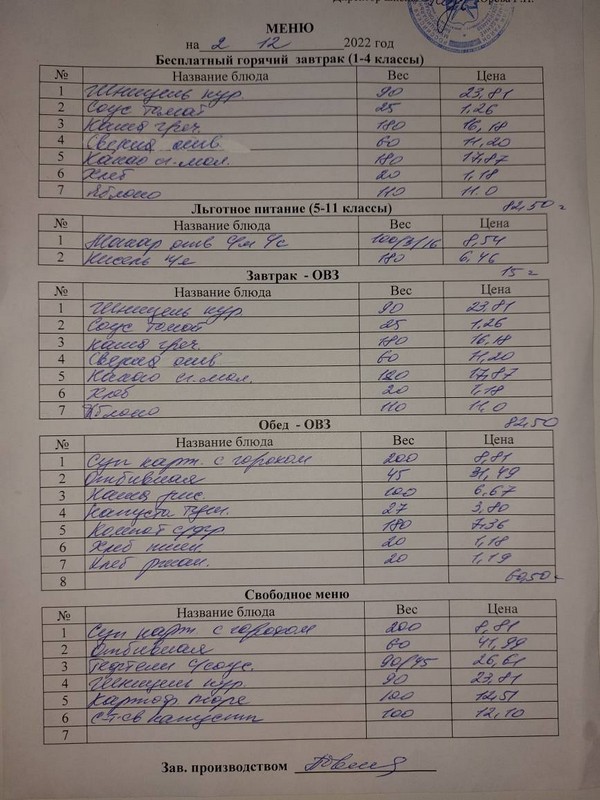 МЕНЮ
на 2 12 2022 год
Бесплатный горячий завтрак (1-4 классы)
№ Название блюда Вес Цена
1 Шницель кур. 90 23,81
2 Соус томат 25 1.26
3 Каша греч. 180 16,18
4 Свекла отв. 60 11,20
5 Какао сг.мол. 180 17,87
6 Хлеб 20 1,18
7 Яблоко 110 11.0
82,50
Льготное питание (5-11 классы)
№ Название блюда Вес Цена
1 Макар отв с/м с/с 100/3/16 8,54
2 Кисель 180 6,46
15 =
Завтрак - ОВЗ
№ Название блюда Вес Цена
1 Шницель кур 90 23,81
2 Соус томат 25 1,26
3 Каша греч. 180 16,18
4 Свекла отв 60 11,20
5 Какао сг.мол. 180 17,87
6 Хлеб 20 1,18
7 Яблоко 110 11,0
82,50
Обед - ОВЗ
№ Название блюда Вес Цена
1 Суп карт. с горохом 200 8,81
2 Отбивная 45 31,49
3 Каша рис. 100 6.67
4 Капуста туш. 27 3,80
5 Компот с/фр 180 7,36
6 Хлеб пшен. 20 1,18
7 Хлеб ржан. 20 1,19
8 60,50
Свободное меню
№ Название блюда Вес Цена
1 Суп карт с горохом 200 8,81
2 Отбивная 60 41,99
3 Тефтели с/соус. 90/45 26,61
4 Шницель кур. 90 23,81
5 Картоф пюре 100 12,51
6 с-т св капусты 100 12,10
7
Зав. производством